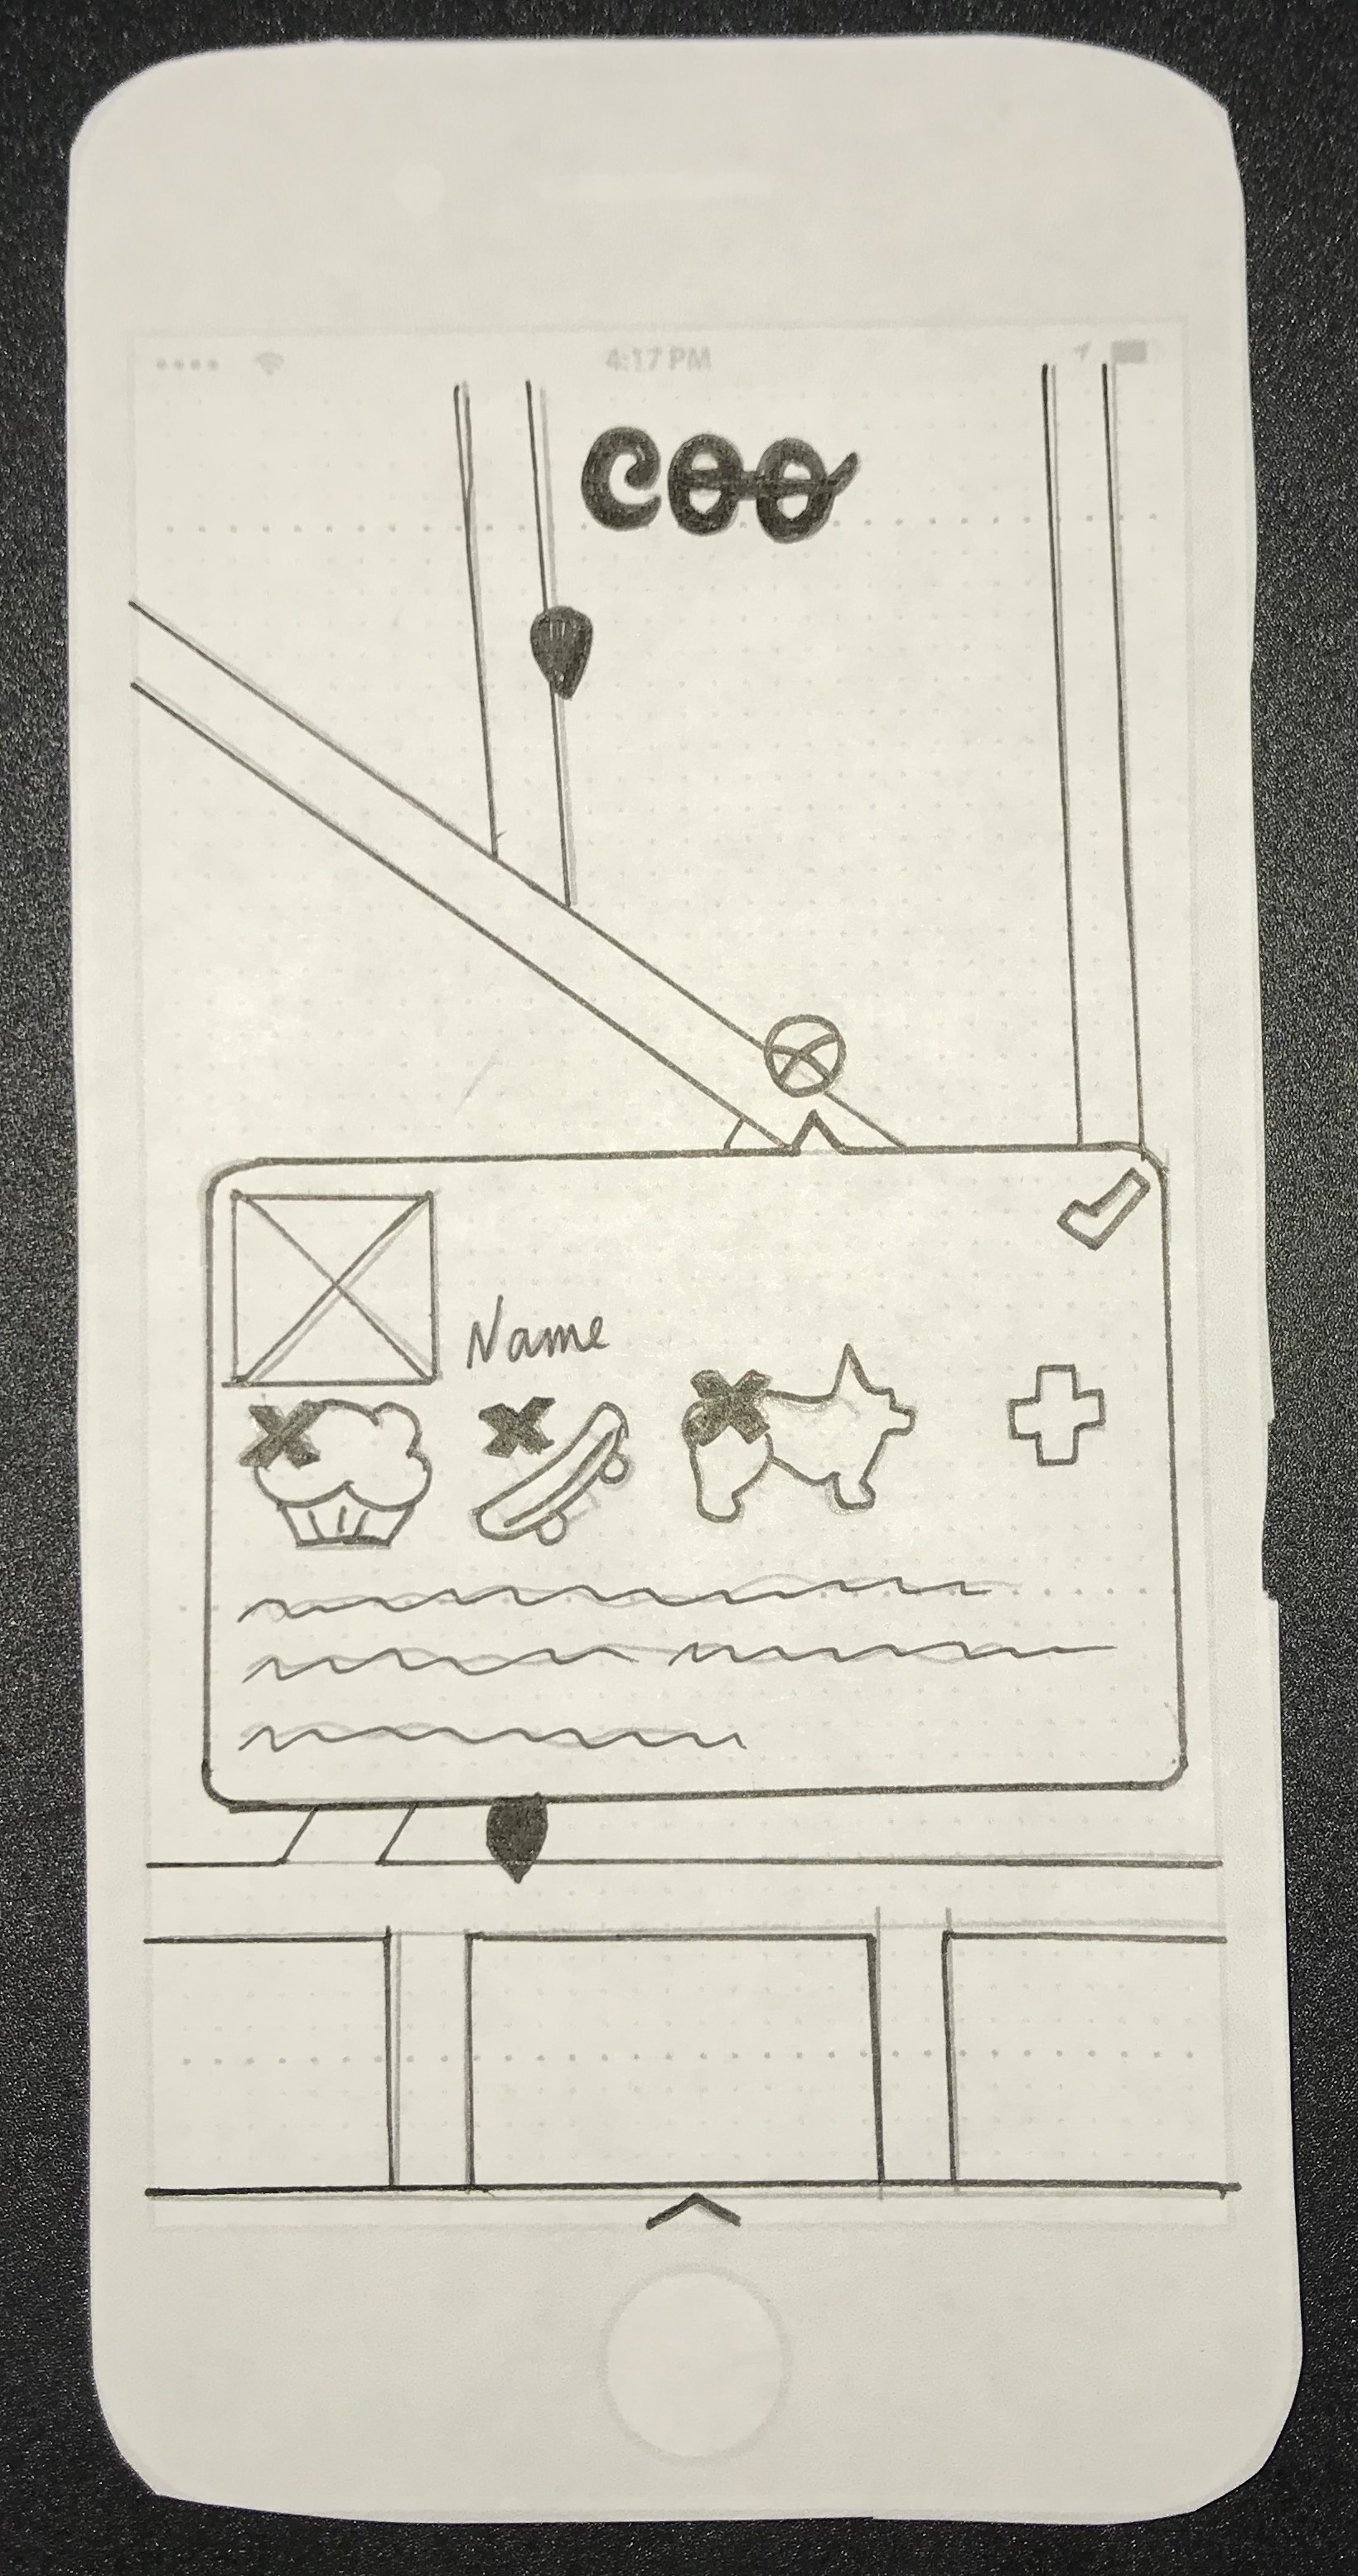 4:17 PM
coo
Name